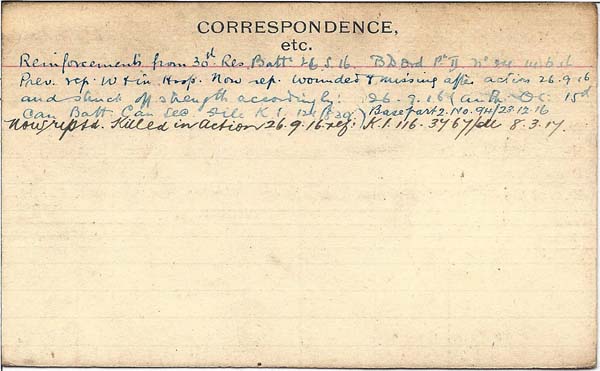 CORRESPONDENCE,
etc.
Reinforcements from 30th Res. Battn 26.5.16. B D Ord Pt II No 24 14.6.16
Prev. rep. W & in Hosp. Now rep. wounded & missing after action 26.9.16
and struck off strength accordingly: 26.9.16 (auth. O.C. 15th
Can Batt. Can Sec File K.1. Base Part 2. No. 94/28.12.16
Now reptd. Killed in Action 26.9.16 ref: K.1.116.3767/ 8.3.17.